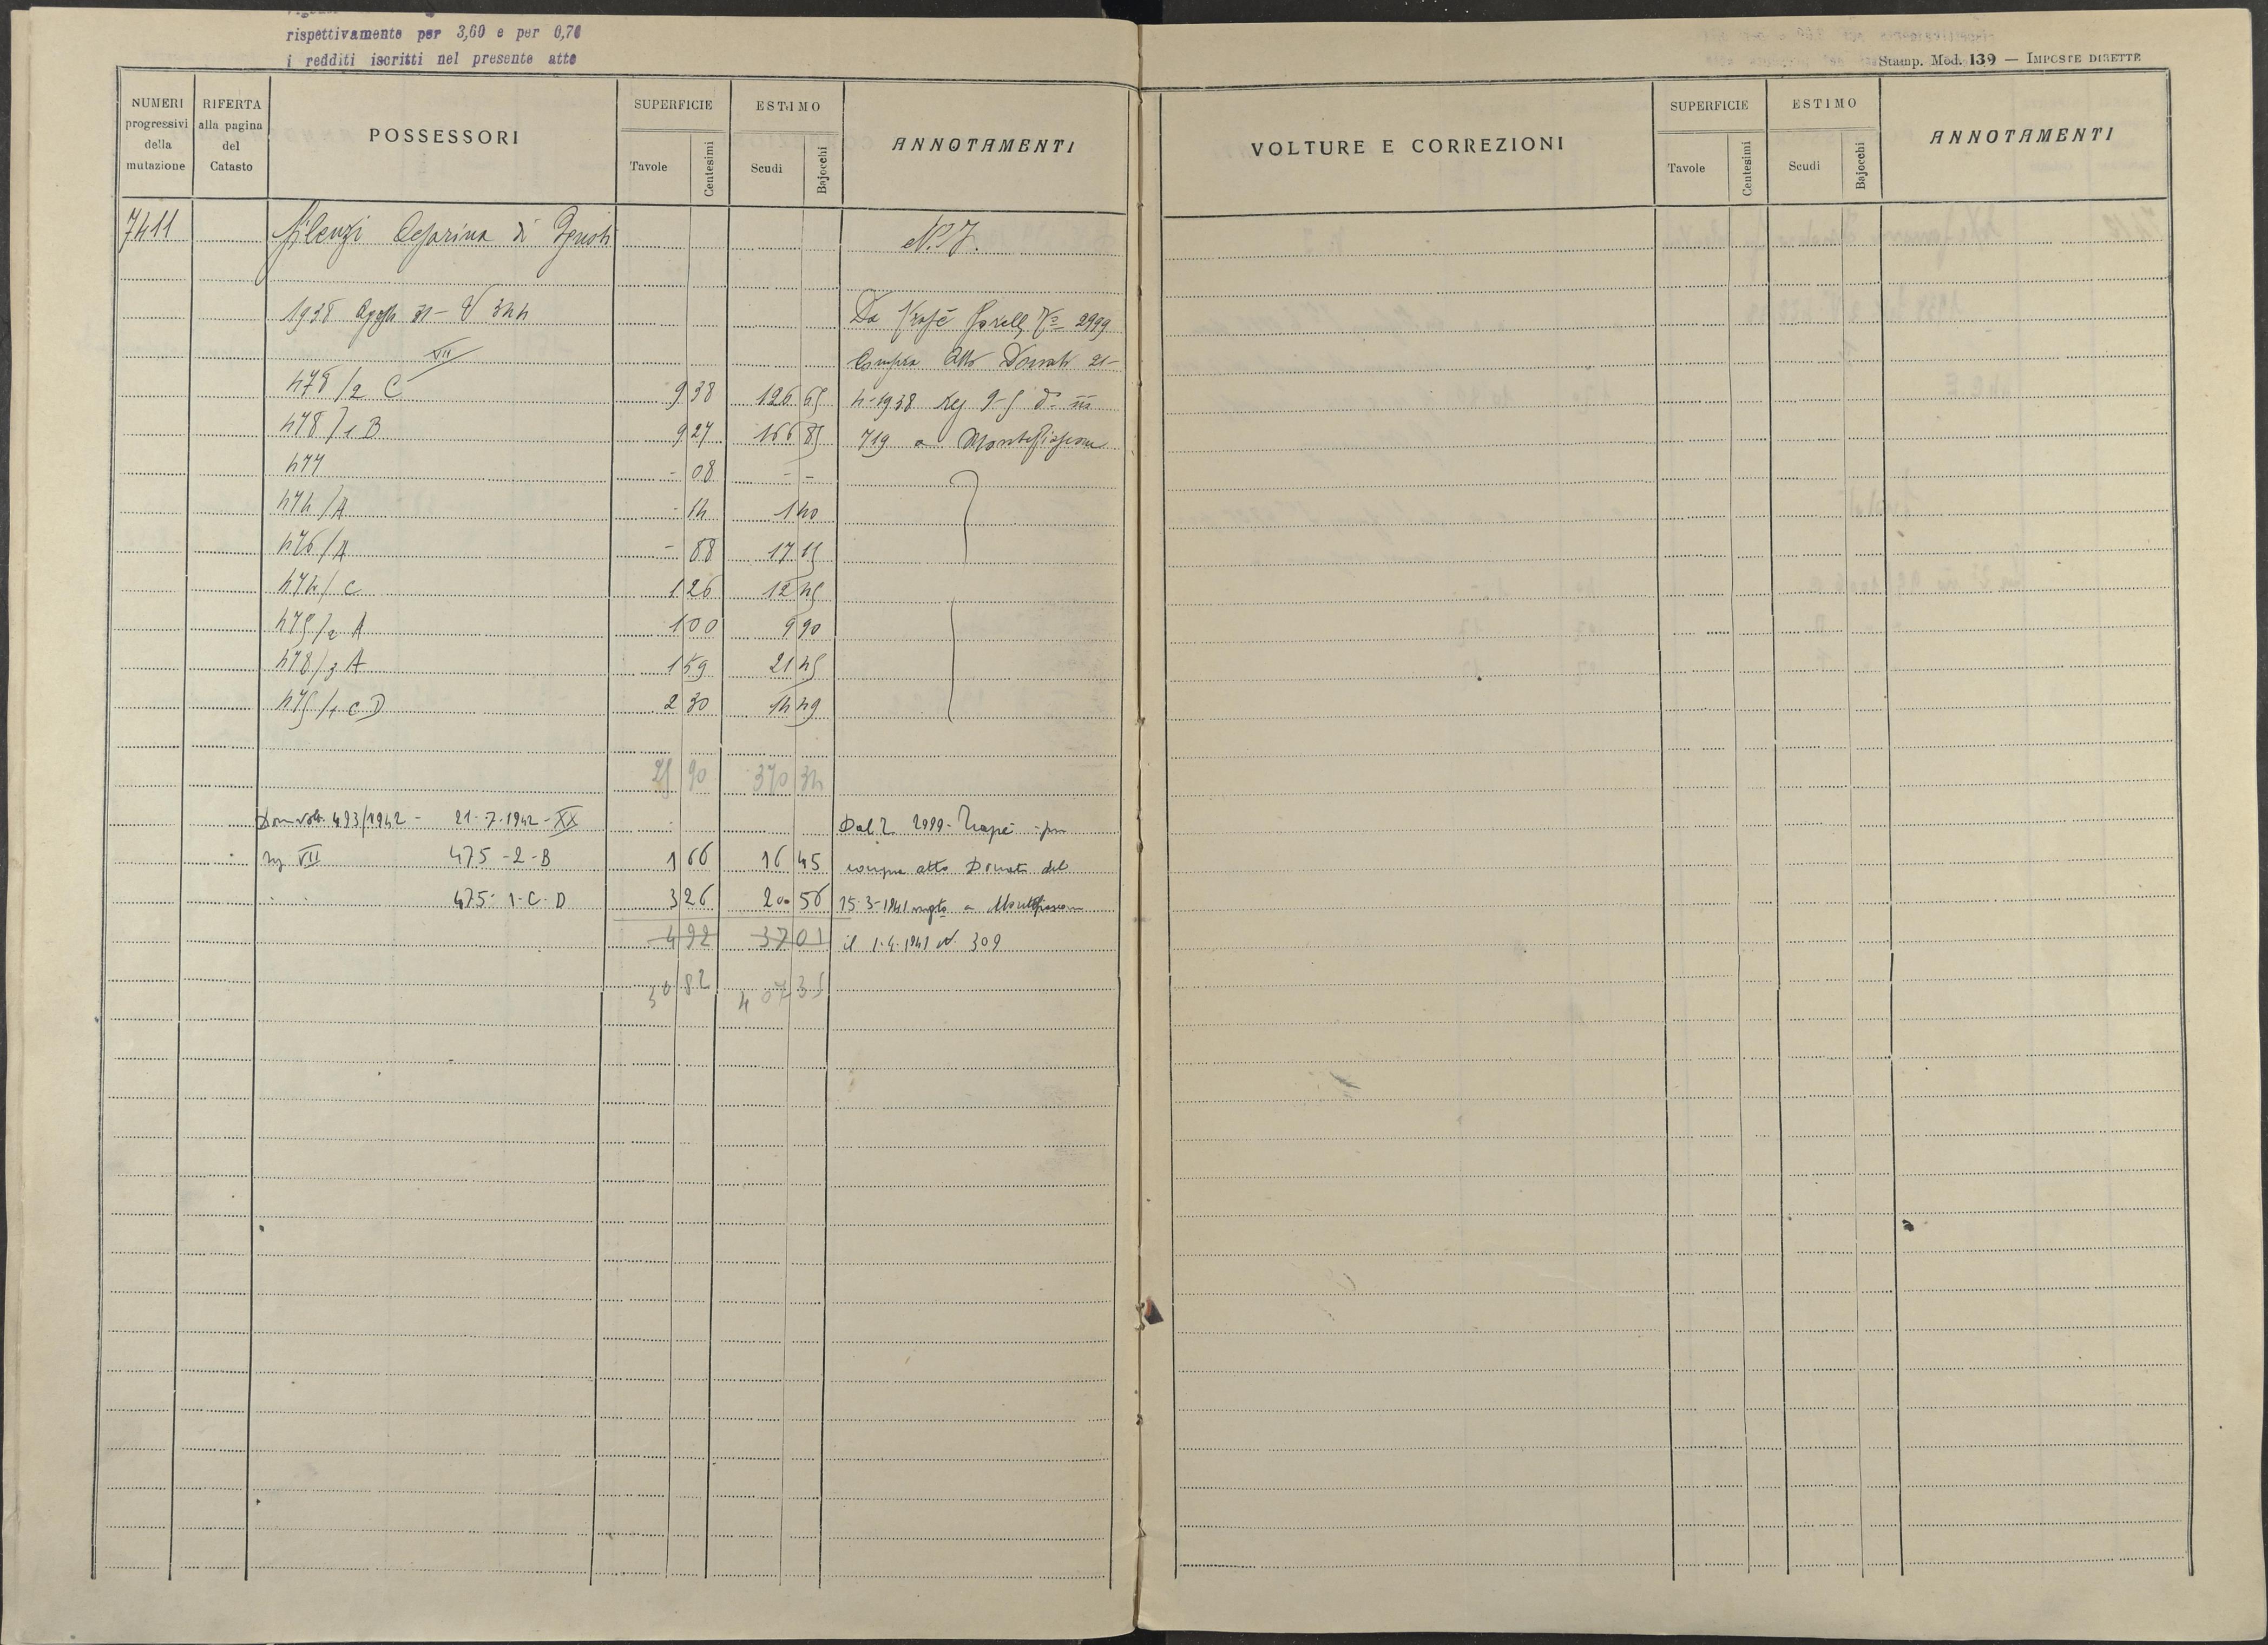 rispettivamente per 3,60 e per 0,70
i redditi iscritti nel presente atto
Stamp. Mod. 139 — IMPOSTE DIRETTE
NUMERI progressivi della mutazione
RIFERTA alla pagina del Catasto
POSSESSORI
SUPERFICIE
Tavole
Centesimi
ESTIMO
Scudi
Bajocchi
ANNOTAMENTI
VOLTURE E CORREZIONI
SUPERFICIE
Tavole
Centesimi
ESTIMO
Scudi
Bajocchi
ANNOTAMENTI
7411 Cesarina di
N. 7.
1938 31 - V 344 Da 2999
VII Compra Atto Donati 21-
478/2 C 9 38 126 65 4-1938 Reg 9-5 d°
478/1 B 9 27 166 85 719 a Montefiascone
477 - 08 - -
474/A - 14 1 40
476/A - 88 17 15
474/C 1 26 12 45
475/2 A 1 00 9 90
478/3 A 1 59 21 45
475/1 C D 2 30 14 49
25 90 370 34
Dom volt. 493/1942 - 21-7-1942-XX Dal 2999 - Trapè - per
VII 475-2-B 1 66 16 45 compra atto Donati del
475-1-C-D 3 26 20 56 15-3-1941 a Montefiascone
4 92 37 01 il 1-4-1941 N. 309
30 82 407 35